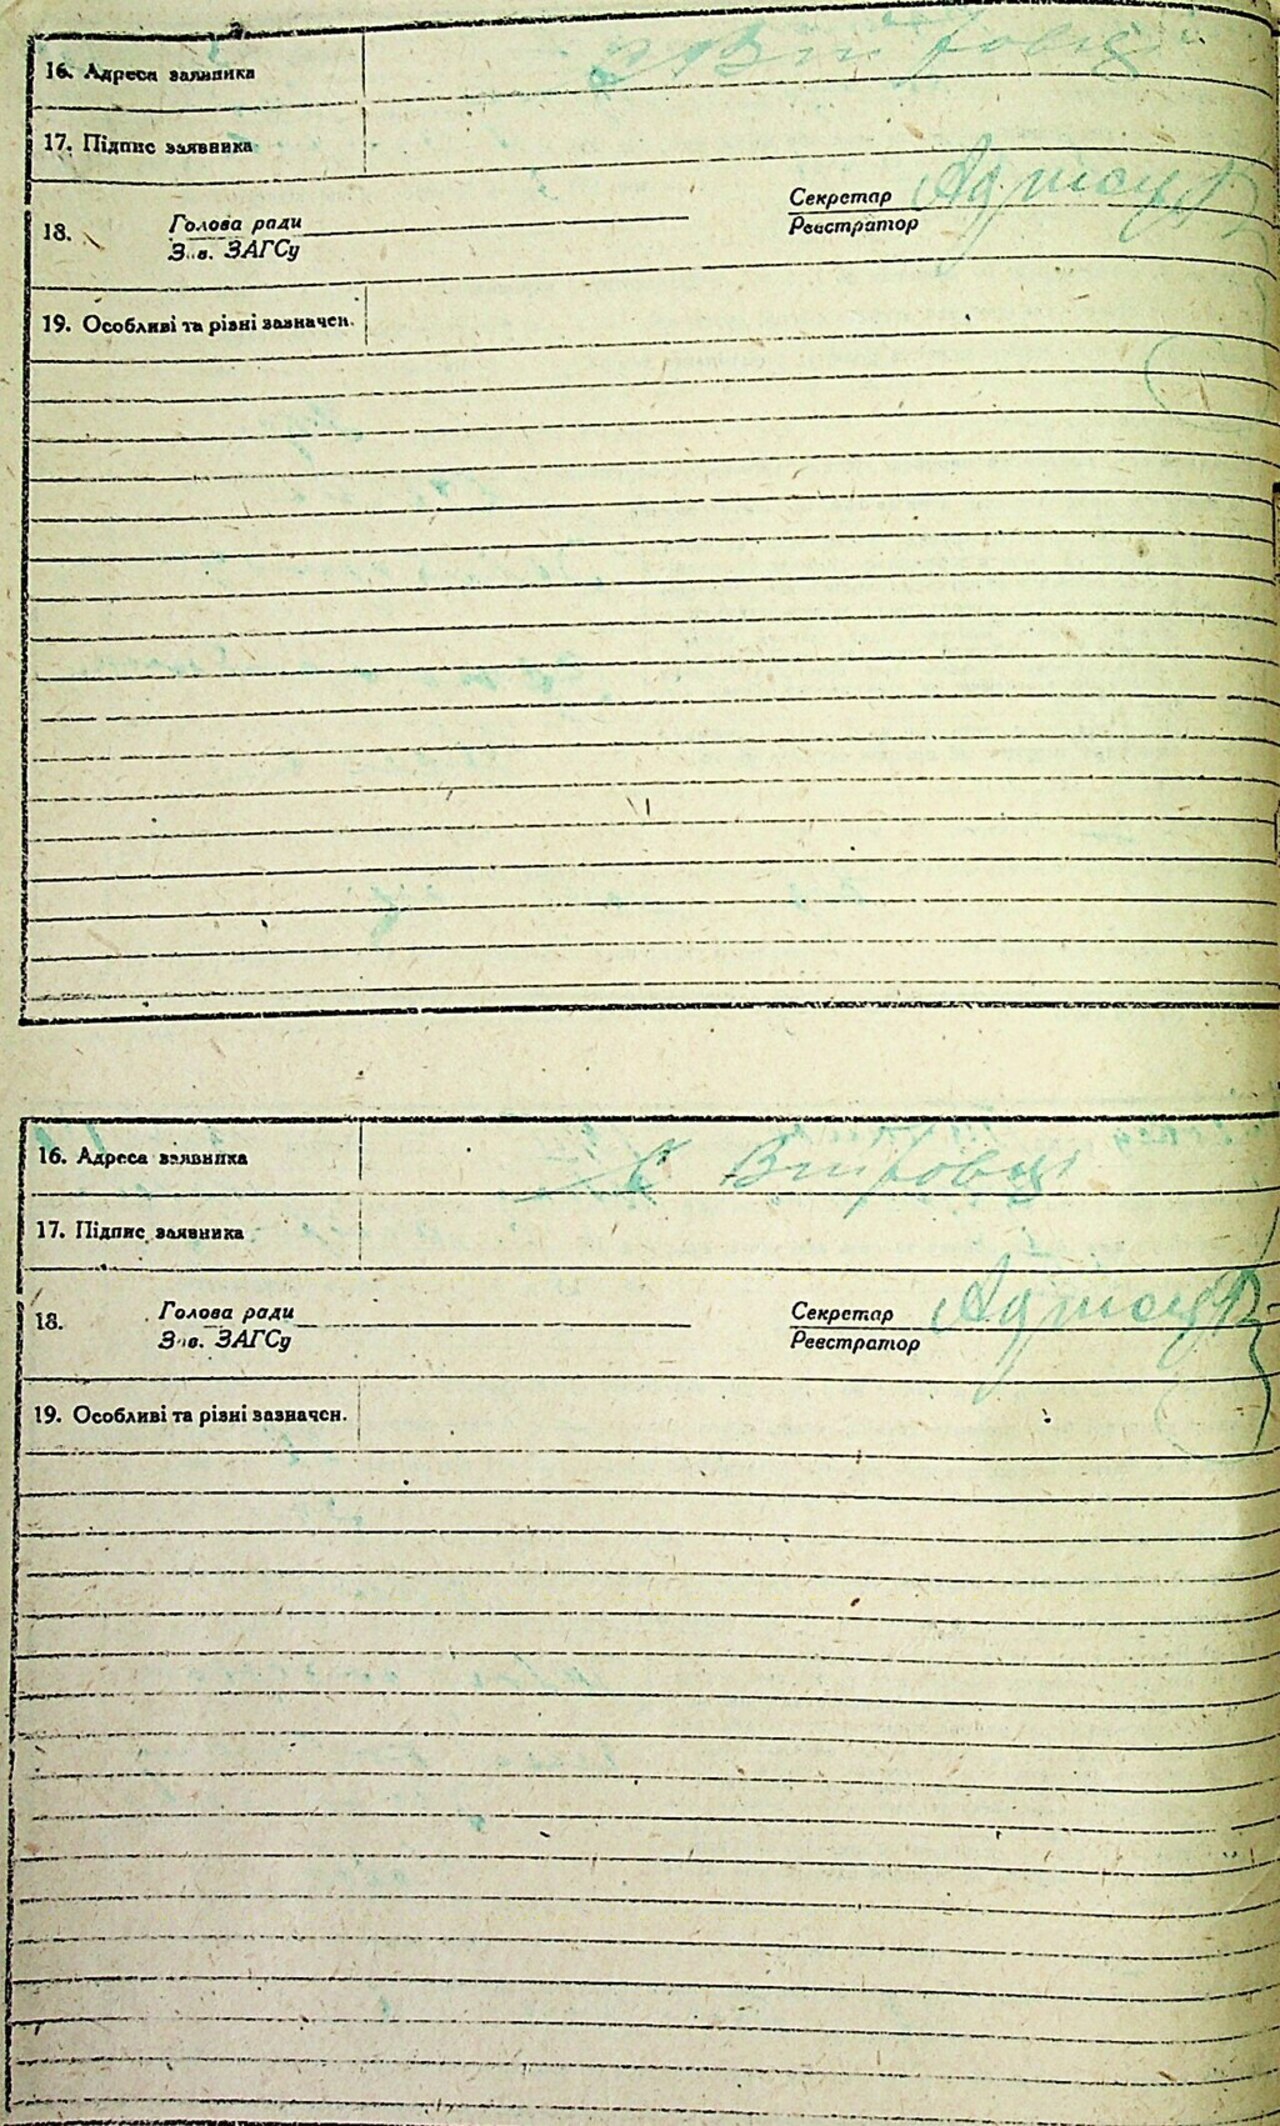 16. Адреса заявника
17. Підпис заявника
18. Голова ради Секретар
Зав. ЗАГСу Реєстратор
19. Особливі та різні зазначен.
16. Адреса заявника с Вітровці
17. Підпис заявника
18. Голова ради Секретар
Зав. ЗАГСу Реєстратор
19. Особливі та різні зазначен.